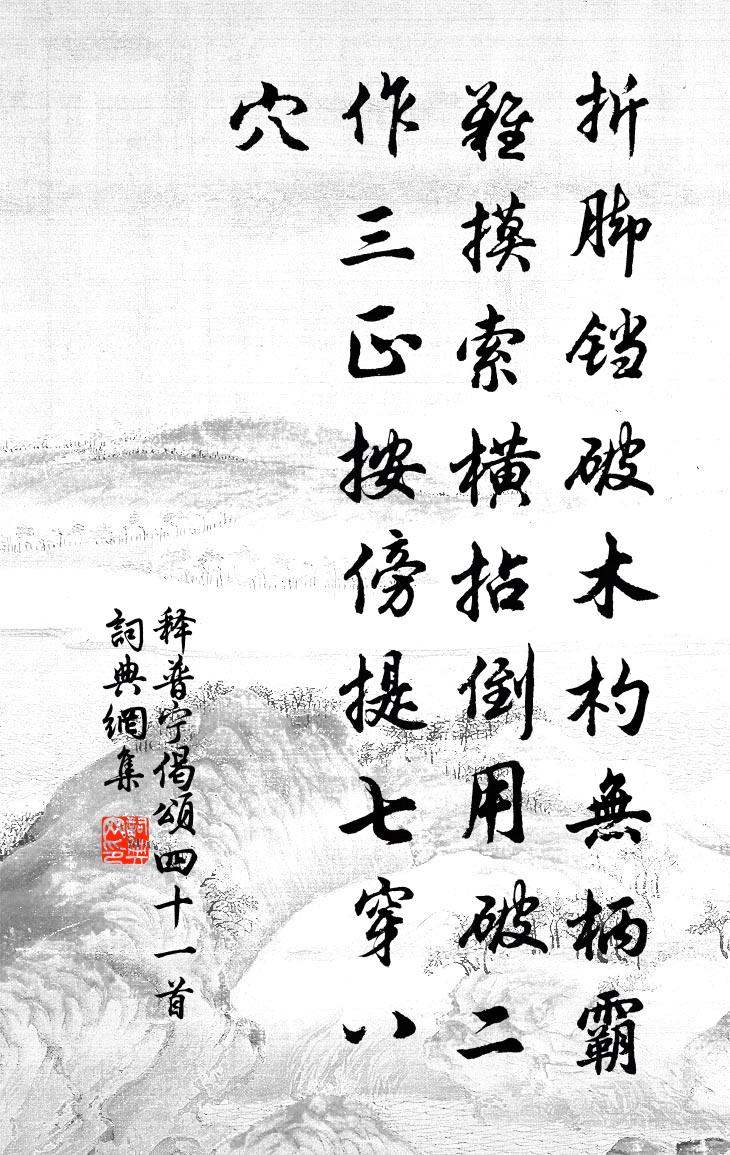 折脚铛破木杓無柄霸
難摸索横拈倒用破二
作三正按傍提七穿八
穴
释普宁偈頌四十一首
詞典網集